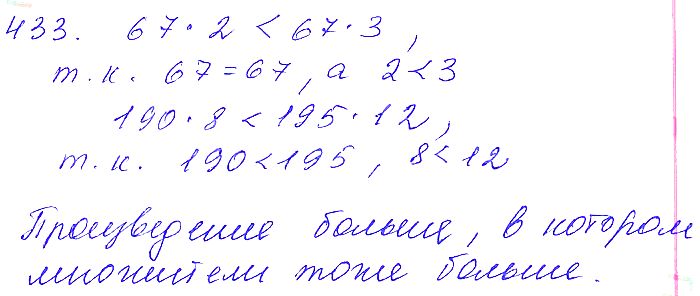 433. 67 · 2 < 67 · 3 ,
т.к. 67 = 67 , а 2 < 3
190 · 8 < 195 · 12 ,
т.к. 190 < 195 , 8 < 12
Произведение больше, в котором
множители тоже больше.